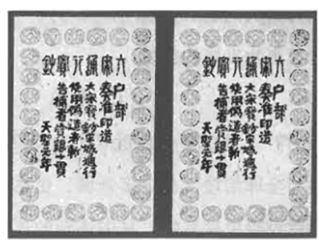 大宋通行寶鈔
戶部
奏准印造
大宋寶鈔通行
使用偽造者斬
告捕者賞銀貫
天聖元年
大宋通行寶鈔
戶部
奏准印造
大宋寶鈔通行
使用偽造者斬
告捕者賞銀貫
天聖元年